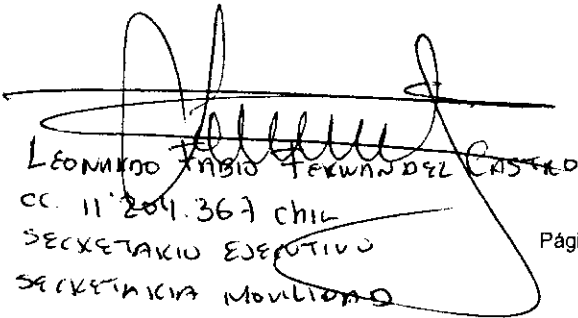 LEONARDO FABIO FERNANDEZ CASTRO
CC. 11'204.367 Chia
SECRETARIO EJECUTIVO
SECRETARIA MOVILIDAD
Pági